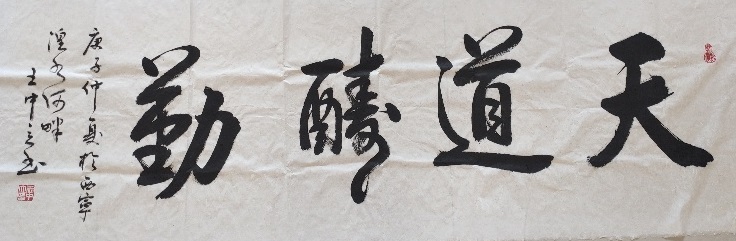 天道酬勤
庚子仲夏於西寧
湟水河畔
王中立书